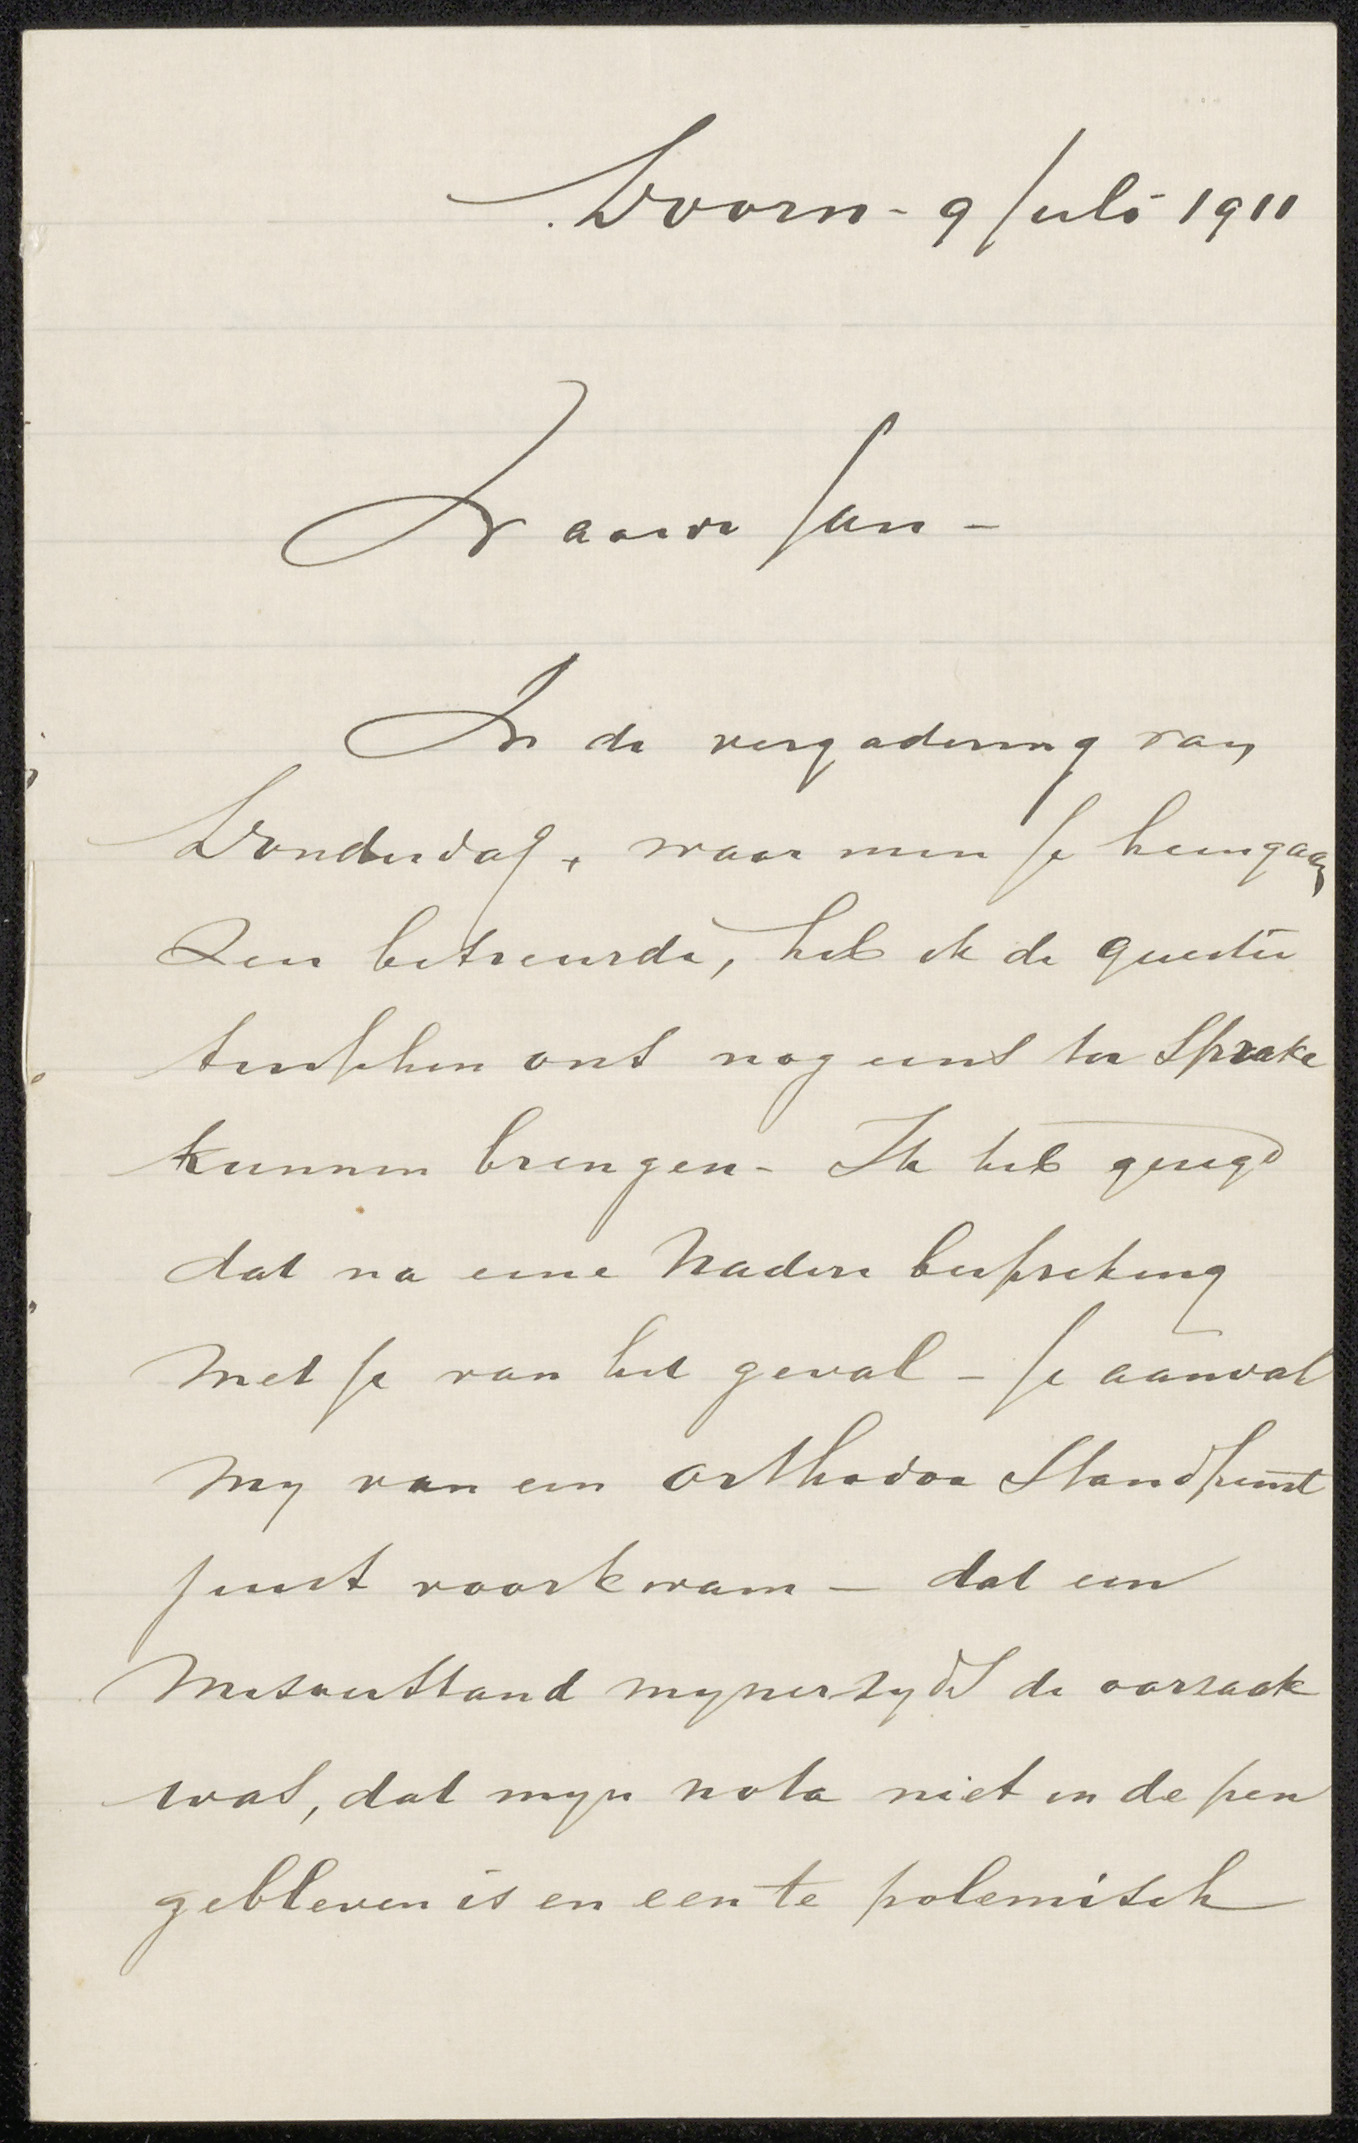 Doorn - 9 Juli 1911
Waarde Jan -
In de vergadering van
Donderdag, waar men je heengaan
zeer betreurde, heb ik de questie
tusschen ons nog eens ter sprake
kunnen brengen - Ik heb gezegd
dat na eene nadere bespreking
met je van het geval - je aanval
my van een orthodox standpunt
juist voorkwam - dat een
misverstand mynerzyds de oorzaak
was, dat myn nota niet in de pen
gebleven is en een te polemisch